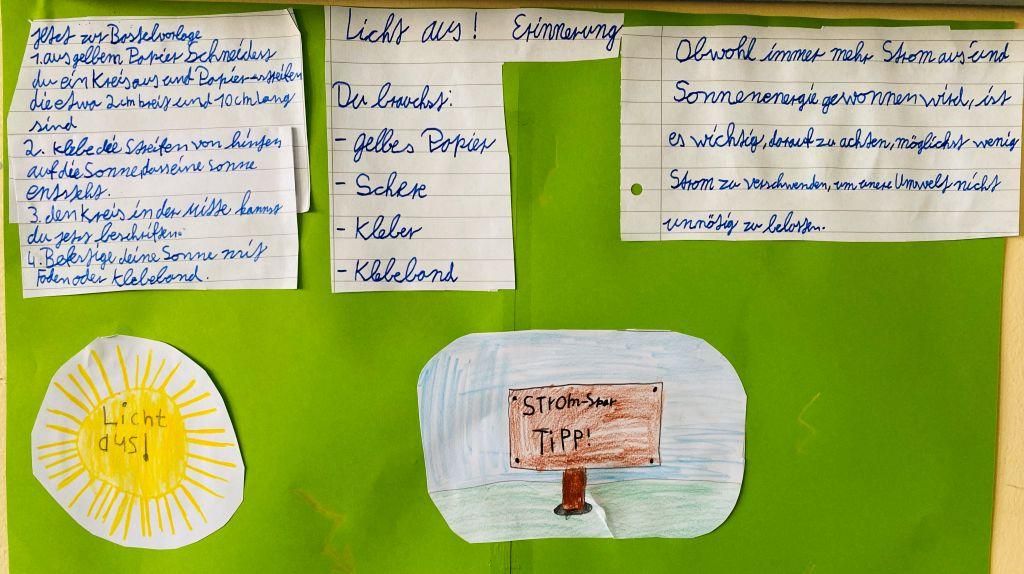 jetzt zur Bastelvorlage
1. aus gelbem Papier Schneidest
du ein Kreis aus und Papier streifen
die etwa 2cm breit und 10cm lang
sind
2. Klebe die Streifen von hinten
auf die Sonne dass eine Sonne
entsteht.
3. den Kreis in der Mitte kannst
du jetzt beschriften.
4. Befestige deine Sonne mit
Faden oder Klebeband.
Licht aus! Erinnerung
Du brauchst:
- gelbes Papier
- Schere
- Kleber
- Klebeband
Obwohl immer mehr Strom aus und
Sonnenenergie gewonnen wird, ist
es wichtig, darauf zu achten, möglichst wenig
Strom zu verschwenden, um unere Umwelt nicht
unnötig zu belasten.
Licht
aus!
STrom-Spar
TiPP!